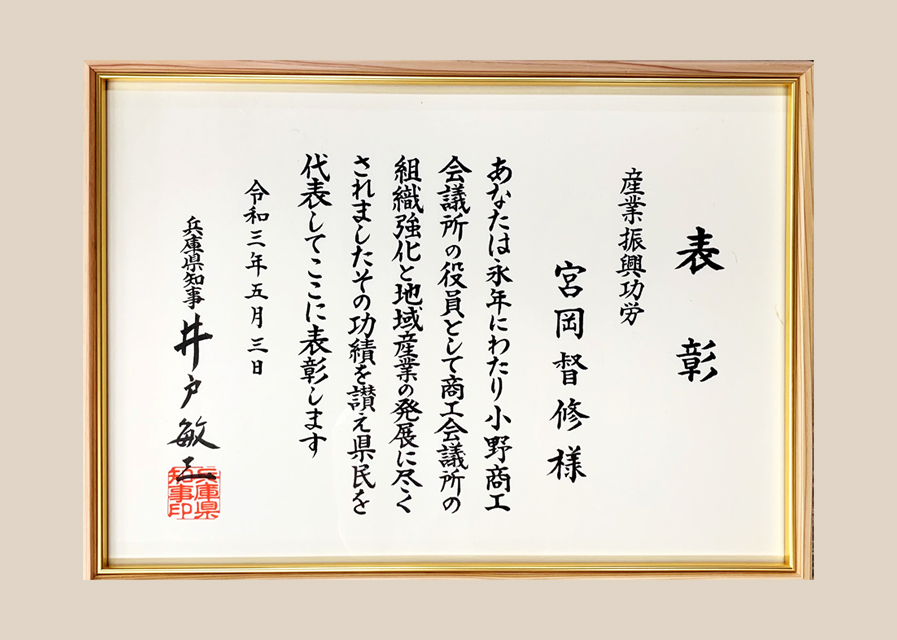 表彰
産業振興功労
宮岡督修様
あなたは永年にわたり小野商工
会議所の役員として商工会議所の
組織強化と地域産業の発展に尽く
されましたその功績を讃え県民を
代表してここに表彰します
令和三年五月三日
兵庫県知事 井戸敏三
兵庫県
知事印